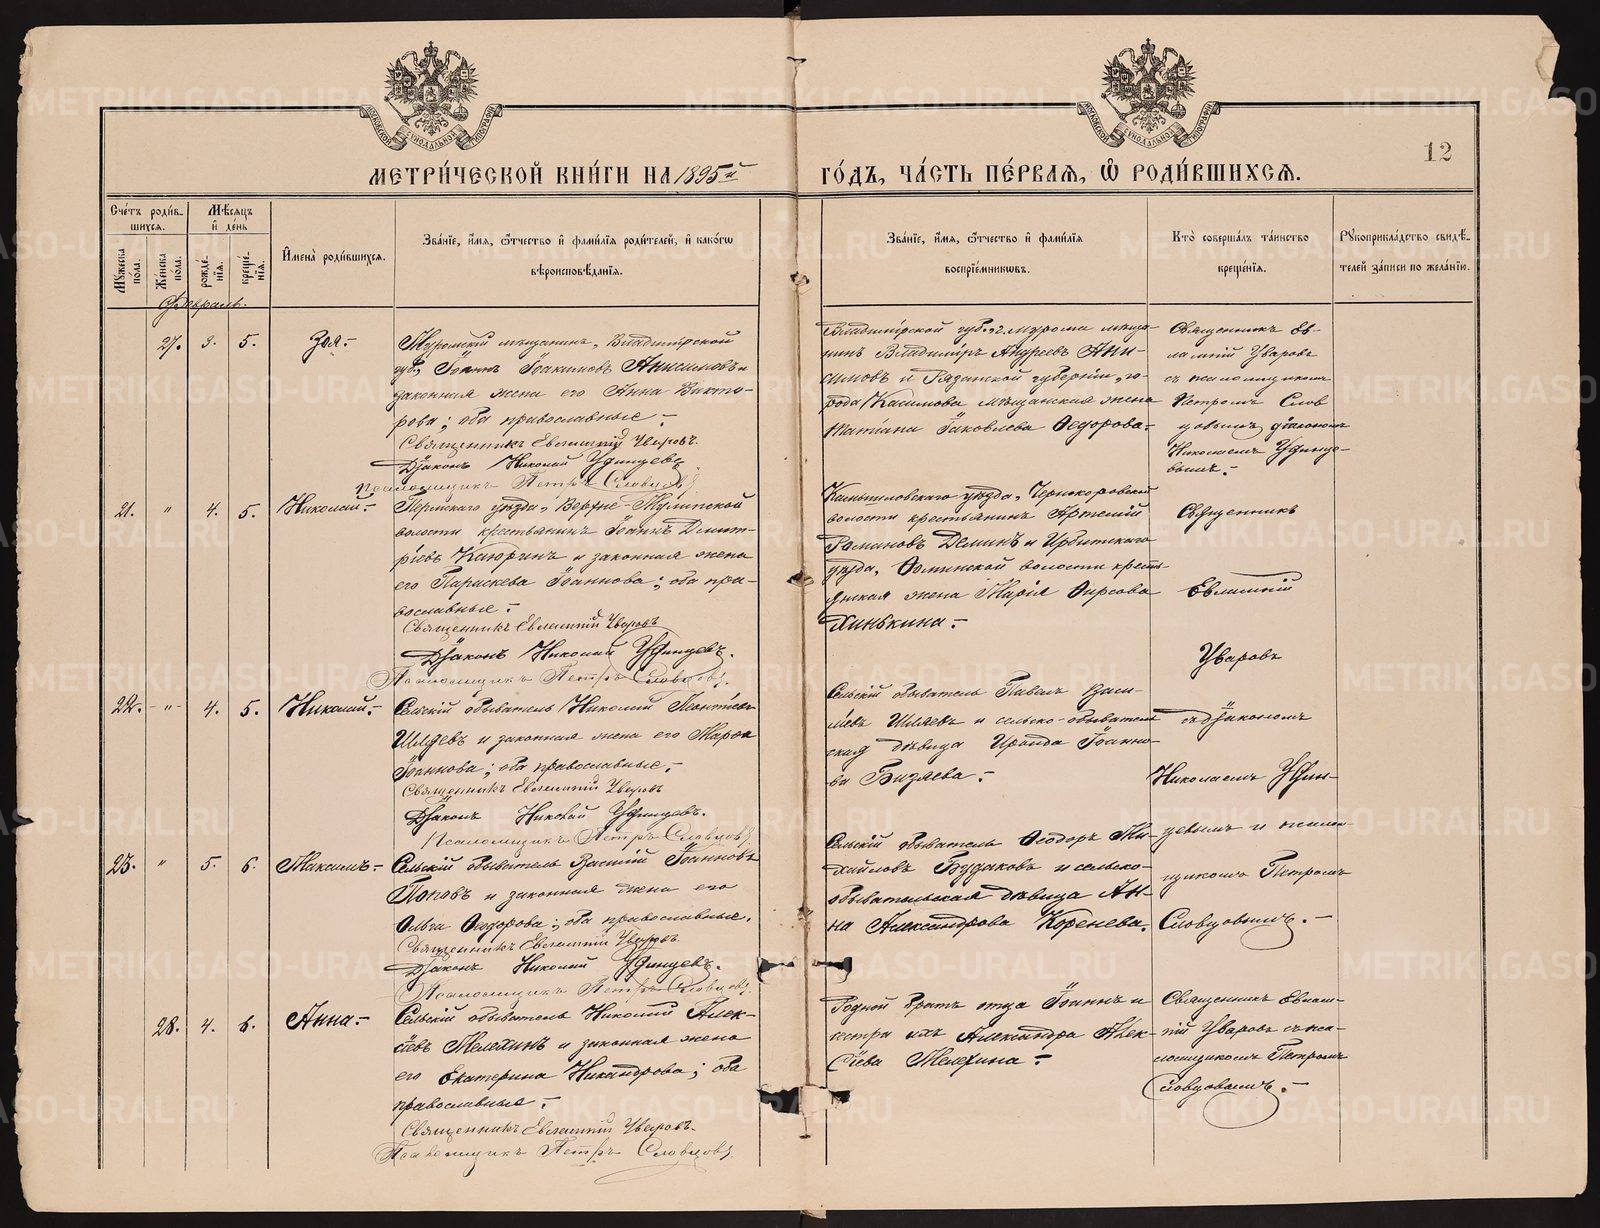 МЕТРИ́ЧЕСКОЙ КНИ́ГИ НА 1895й
ГО́ДЪ, ЧА́СТЬ ПЕ́РВАЯ, Ѡ РОДИ́ВШИХСЯ.
12
Сче́тъ роди́в-
шихся.
Мѣ́сяцъ
и́ де́нь
Мꙋ́жеска
по́ла.
Же́нска
по́ла.
рожде́-
нїя.
креще́-
нїя.
И҆мена̀ роди́вшихся.
Зва́нїе, и҆́мя, ѻ҆́тчество и҆ фами́лїя роди́телей, и҆ како́гѡ
вѣроисповѣ́данїя.
Зва́нїе, и҆́мя, ѻ҆́тчество и҆ фами́лїя
воспрїе́мниковъ.
Кто̀ соверша́лъ та́инство
креще́нїя.
Рꙋкоприкла́дство свидѣ́-
телей за́писи по жела́нїю.
Февраль.
27. 3. 5. Зоя.-
Муромскій мѣщанинъ, Владимірской
губ., Іоаннъ Іоакимовъ Анисимовъ и
законная жена его Анна Викто-
рова; оба православные.-
Священникъ Евлампій Уваровъ.
Діаконъ Николай Удинцевъ
Псаломщикъ Петръ Словцовъ
Владимірской губ. г. Мурома мѣща-
нинъ Владиміръ Андреевъ Ани-
симовъ и Рязанской губерніи, го-
рода Касимова мѣщанская жена
Татіана Іаковлева Ѳедорова.
Священникъ Ев-
лампій Уваровъ
съ псаломщикомъ
Петромъ Слов
цовымъ діакономъ
Николаемъ Удинцо-
вымъ.-
21. " 4. 5. Николай.-
Пермскаго уѣзда, Верхне-Муллинской
волости крестьянинъ Іоаннъ Димит-
ріевъ и законная жена
его Параскева Іоаннова; оба пра-
вославные.-
Священникъ Евлампій Уваровъ
Діаконъ Николай Удинцевъ.
Псаломщикъ Петръ Словцовъ.
Камышловскаго уѣзда, Чернокоровской
волости крестьянинъ Артемій
Романовъ Деминъ и Ирбитскаго
уѣзда, Ѳоминской волости кресть-
янская жена Марія Ѳирсова
Хинькина.-
Священникъ
Евлампій
Уваровъ
22. - " - 4. 5. Николай.-
Сельскій обыватель Николай Леонтіевъ
Шляевъ и законная жена его Марѳа
Іоаннова; оба православные.-
Священникъ Евлампій Уваровъ
Діаконъ Николай Удинцевъ.
Псаломщикъ Петръ Словцовъ
Сельскій обыватель Павелъ Васи-
льевъ Шляевъ и сельско-обыватель
ская дѣвица Ираида Іоанно-
ва Бизяева.-
съ діакономъ
Николаемъ Удин-
23. " 5. 6. Максимъ.-
Сельскій обыватель Василій Іоанновъ
Поповъ и законная жена его
Ольга Ѳеодорова; оба православные.
Священникъ Евлампій Уваровъ.
Діаконъ Николай Удинцевъ.
Псаломщикъ Петръ Словцовъ.
Сельскій обыватель Ѳеодоръ Ми-
хайловъ Будаковъ и сельско-
обывательская дѣвица Ан-
на Александрова Коренева.
цевымъ и псалом-
щикомъ Петромъ
Словцовымъ.-
28. 4. 6. Анна.-
Сельскій обыватель Николай Алек-
сіевъ Мелехинъ и законная жена
его Екатерина Никандрова; оба
православные.-
Священникъ Евлампій Уваровъ.
Псаломщикъ Петръ Словцовъ.
Родной братъ отца Іоаннъ и
сестра ихъ Александра Алек-
сіева Мелехина.-
Священникъ Евлам-
пій Уваровъ съ пса-
ломщикомъ Петромъ
Словцовымъ.-
METRIKI.GASO-URAL.RU